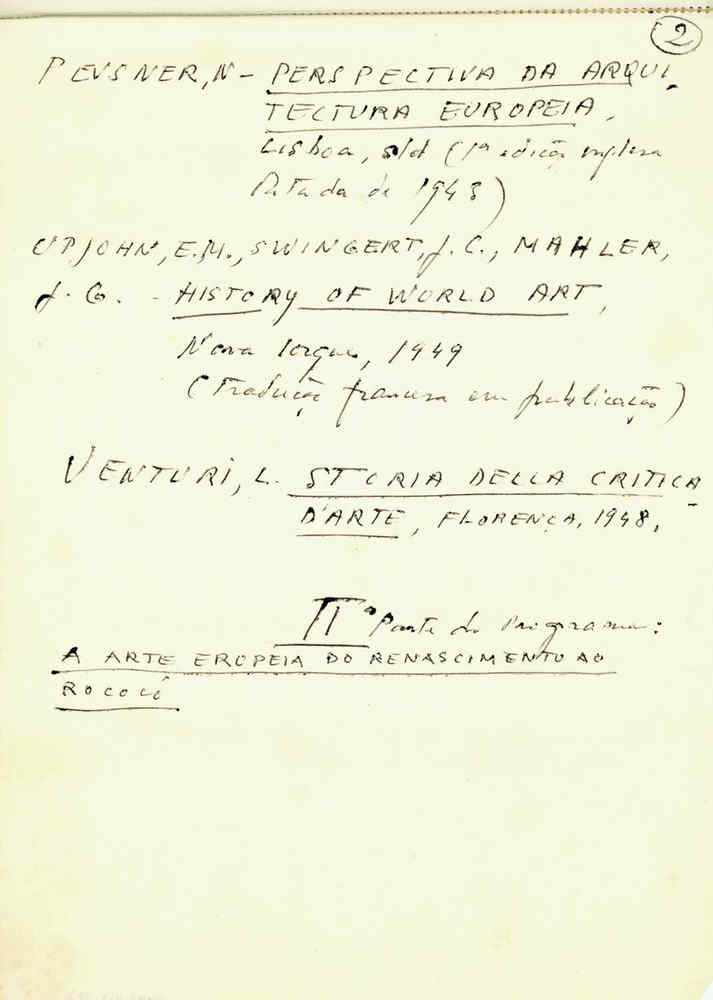 2
PEVSNER, N - PERSPECTIVA DA ARQUI
TECTURA EUROPEIA,
Lisboa, s/d (1ª edição inglesa
datada de 1943)
UPJOHN, E.M., SWINGERT, J. C., MAHLER,
J. G. - HISTORY OF WORLD ART,
Nova Iorque, 1949
(Tradução francesa em publicação)
VENTURI, L. STORIA DELLA CRITICA
D'ARTE, FLORENÇA, 1948.
IIª Parte do Programa:
A ARTE EROPEIA DO RENASCIMENTO AO
ROCOCÓ